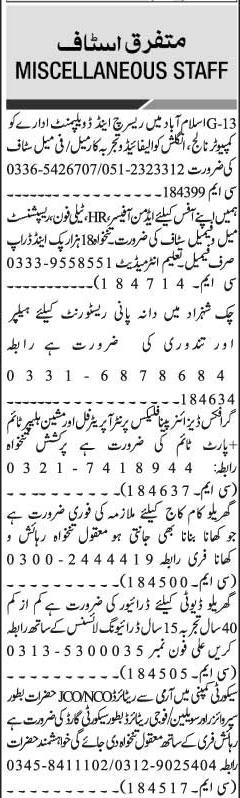 متفرق اسٹاف
MISCELLANEOUS STAFF
G-13 اسلام آباد میں ریسرچ اینڈ ڈویلپمنٹ ادارے کو
کمپیوٹر نالج، انگلش کوالیفائیڈ و تجربہ کار میل/فی میل سٹاف
کی ضرورت 0336-5426707/051-2323312
سی ایم 184399
ہمیں اپنے آفس کیلئے ایڈمن آفیسر، HR، ٹیلی فون، ریسپشنسٹ
میل و فیمیل سٹاف کی ضرورت تنخواہ 18 ہزار پک اینڈ ڈراپ
صرف فیمیل تعلیم انٹرمیڈیٹ 0333-9558551
(سی ایم 184714)
چک شہزاد میں دانہ پانی ریسٹورنٹ کیلئے ہیلپر
اور تندوری کی ضرورت ہے رابطہ
0331-6878684
184634
گرافکس ڈیزائنر پینا فلیکس پرنٹر آپریٹر فل اور مشین ہیلپر ٹائم
+پارٹ ٹائم کی ضرورت ہے پرکشش تنخواہ
رابطہ: 0321-7418944
(سی ایم۔ 184637)
گھریلو کام کاج کیلئے ملازمہ کی فوری ضرورت ہے
جو کھانا بنانا بھی جانتی ہو معقول تنخواہ رہائش و
کھانا فری رابطہ 0300-2444419
(سی ایم۔ 184500)
گھریلو ڈیوٹی کیلئے ڈرائیور کی ضرورت ہے کم از کم
40 سال تجربہ 15 سال ڈرائیونگ لائسنس کے ساتھ رابطہ
کریں علی فون نمبر 0313-5300035
(سی ایم۔ 184505)
سیکورٹی کمپنی میں آرمی سے ریٹائرڈ JCO/NCO حضرات بطور
سپروائزر اور سویلین/فوجی ریٹائرڈ بطور سیکورٹی گارڈ کی ضرورت ہے
رہائش فری کے ساتھ معقول تنخواہ دی جائے گی خواہشمند حضرات
رابطہ 0345-8411102/0312-9025404
(سی ایم۔ 184517)